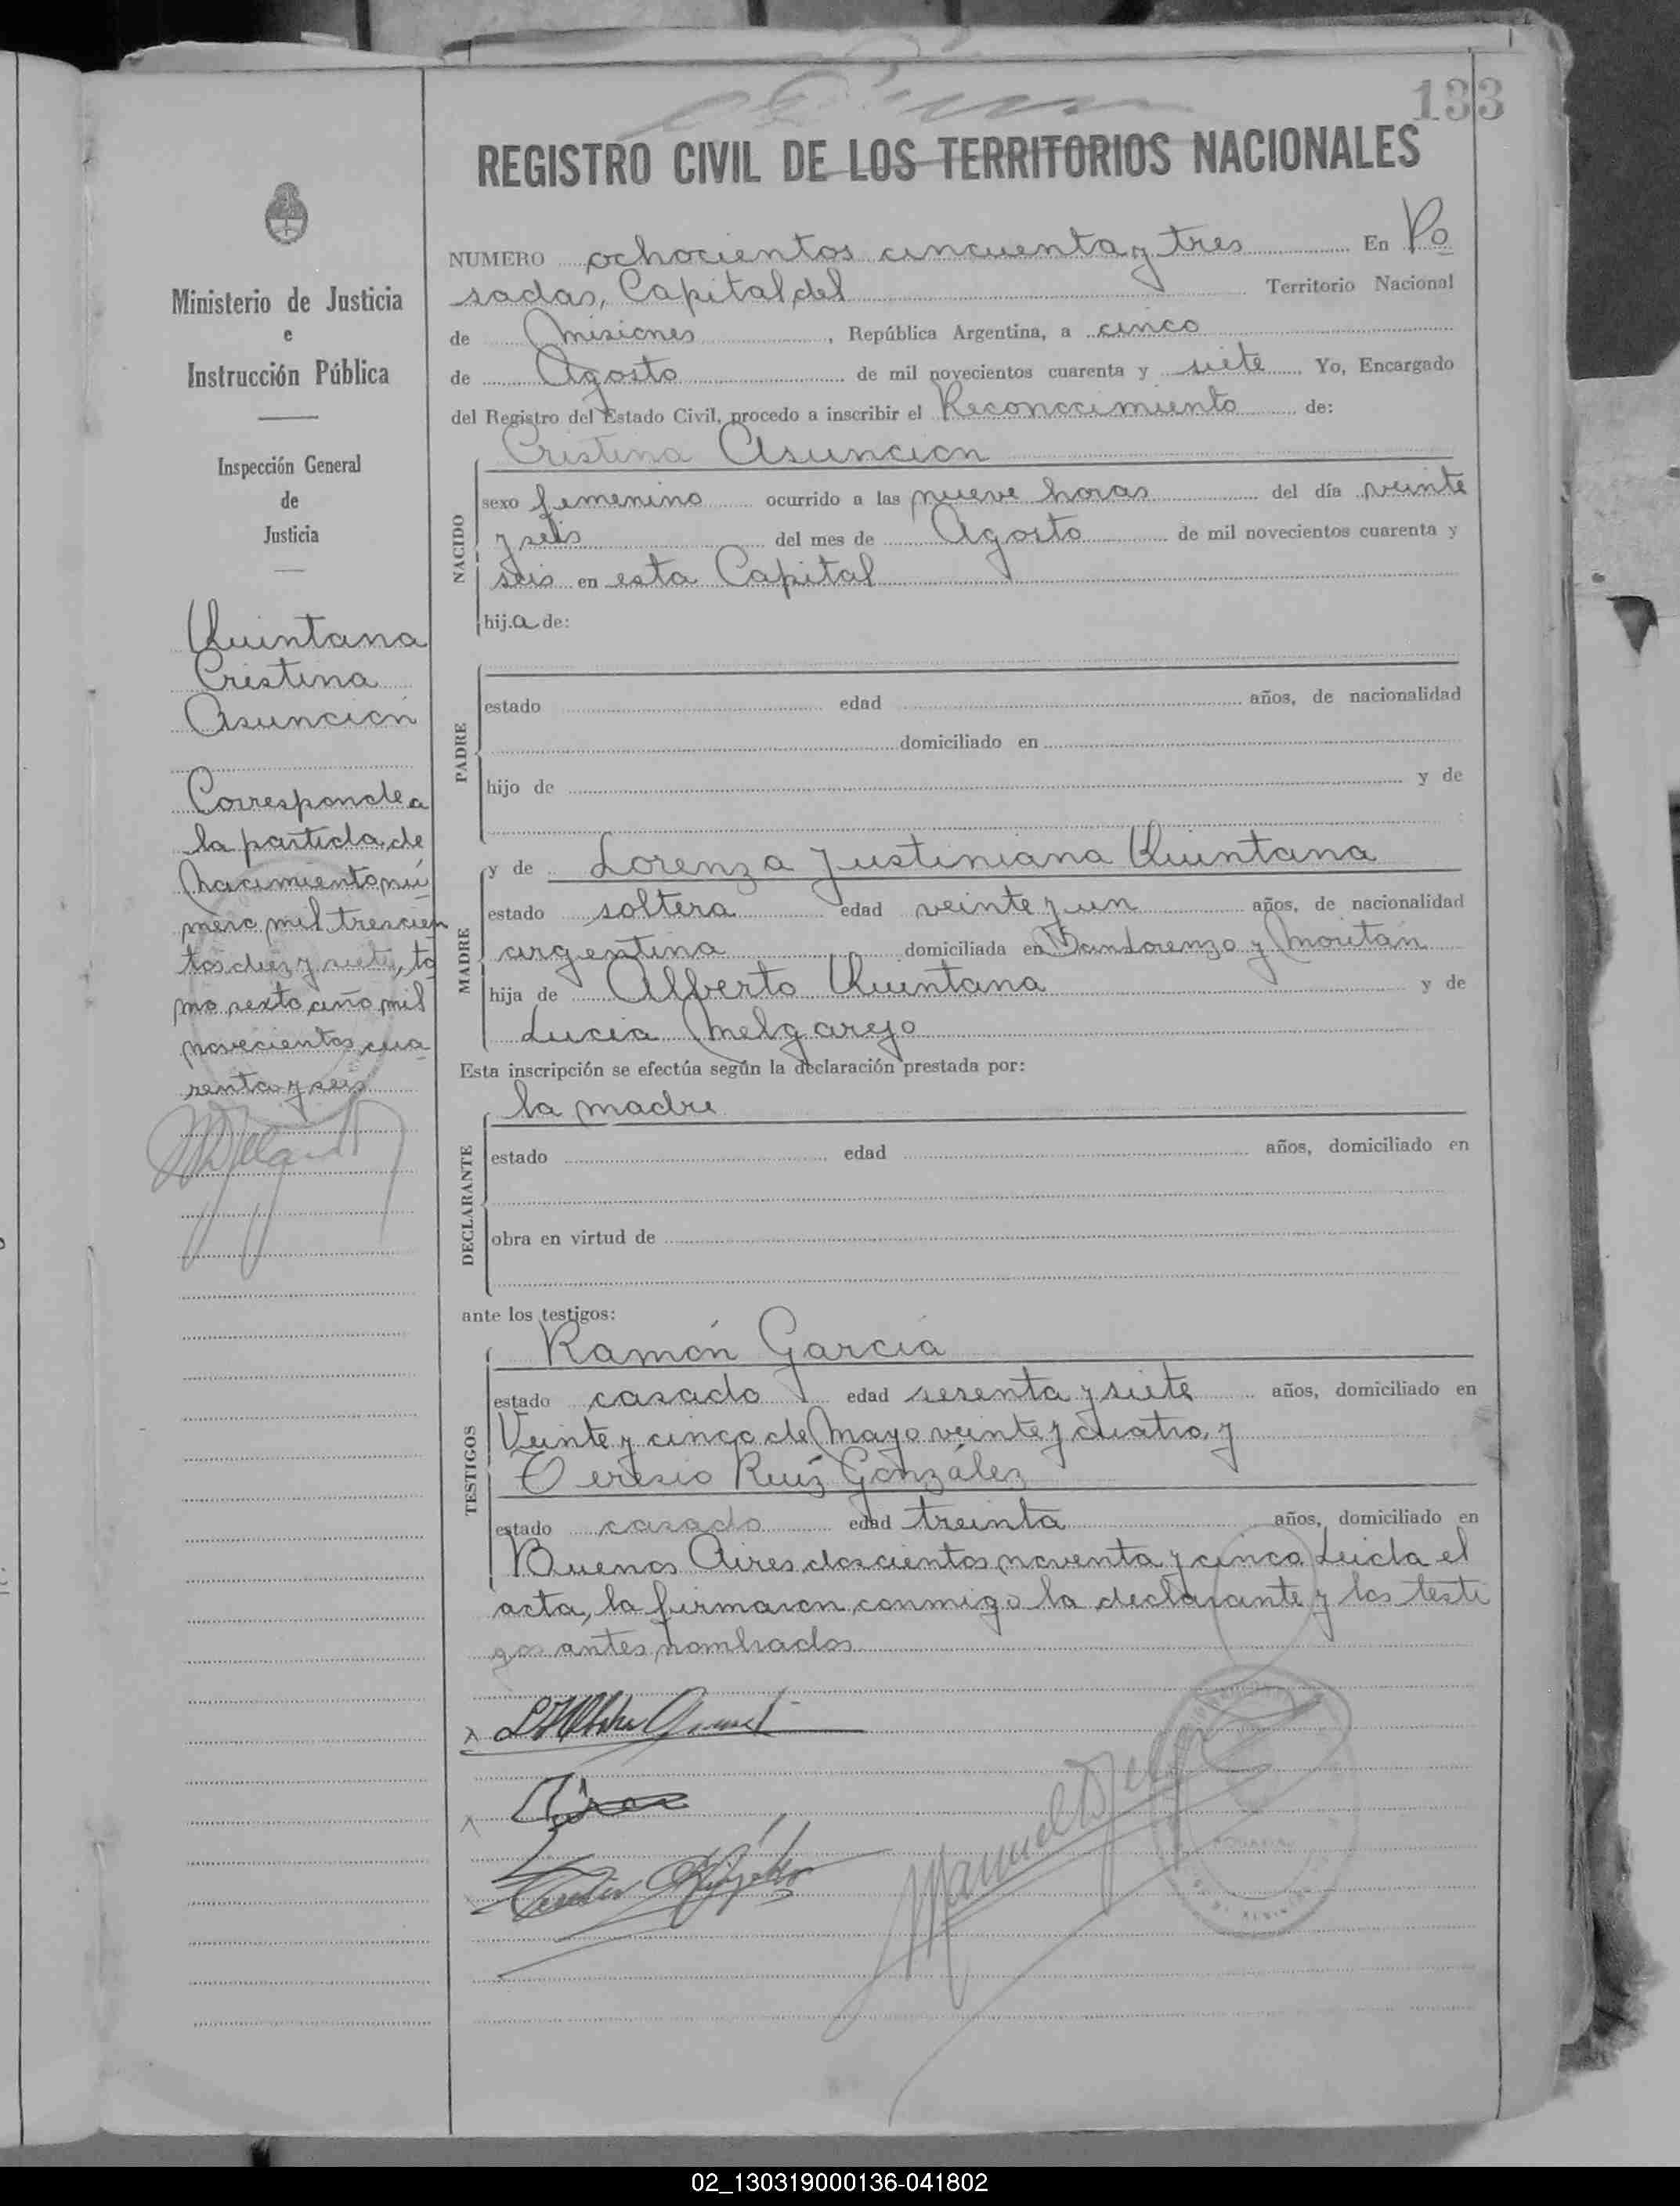 133
REGISTRO CIVIL DE LOS TERRITORIOS NACIONALES
Ministerio de Justicia
e
Instrucción Pública
Inspección General
de
Justicia
Quintana
Cristina
Asunción
Corresponde a
la partida de
Nacimiento nú
mero mil trescien
tos diez y siete, to
mo sexto año mil
novecientos cua
renta y seis
NUMERO ochocientos cincuenta y tres En Po
sadas, Capital del Territorio Nacional
de Misiones, República Argentina, a cinco
de Agosto de mil novecientos cuarenta y siete. Yo, Encargado
del Registro del Estado Civil, procedo a inscribir el Reconocimiento de:
Cristina Asuncion
NACIDO
sexo femenino ocurrido a las nueve horas del día veinte
y seis del mes de Agosto de mil novecientos cuarenta y
seis en esta Capital
hij.a de:
PADRE
estado edad años, de nacionalidad
domiciliado en
hijo de y de
MADRE
y de Lorenza Justiniana Quintana
estado soltera edad veinte y un años, de nacionalidad
argentina domiciliada en San Lorenzo y Moritán
hija de Alberto Quintana y de
Lucia Melgarejo
Esta inscripción se efectúa según la declaración prestada por:
la madre
DECLARANTE
estado edad años, domiciliado en
obra en virtud de
ante los testigos:
Ramón García
TESTIGOS
estado casado edad sesenta y siete años, domiciliado en
Veinte y cinco de Mayo veinte y cuatro, y
Teresio Ruíz González
estado casado edad treinta años, domiciliado en
Buenos Aires doscientos noventa y cinco. Leida el
acta, la firmaron conmigo la declarante y los testi
gos antes nombrados
02_130319000136-041802